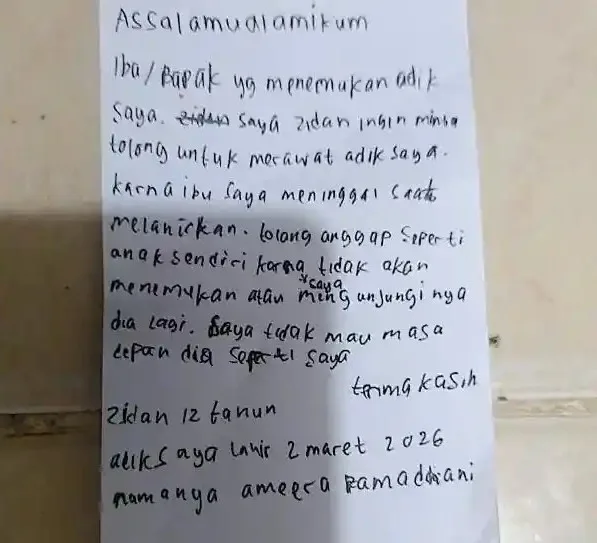 Assalamualamikum
Iba/Bapak yg menemukan adik
saya. zidan saya zidan ingin minta
tolong untuk merawat adik saya.
karna ibu saya meninggal saat
melahirkan. tolong anggap seperti
anak sendiri karna tidak akan
menemukan atau *saya mengunjungi nya
dia lagi. saya tidak mau masa
depan dia seperti saya
terima kasih
zidan 12 tahun
adik saya lahir 2 maret 2026
namanya ameera ramaddiani